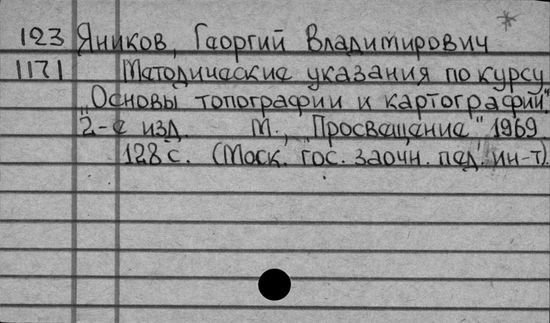 *
123 Яников, Георгий Владимирович
1171 Методические указания по курсу
„Основы топографии и картографии".
2-е изд. М., „Просвещение" 1969
128 с. (Моск. гос. заочн. пед. ин-т).